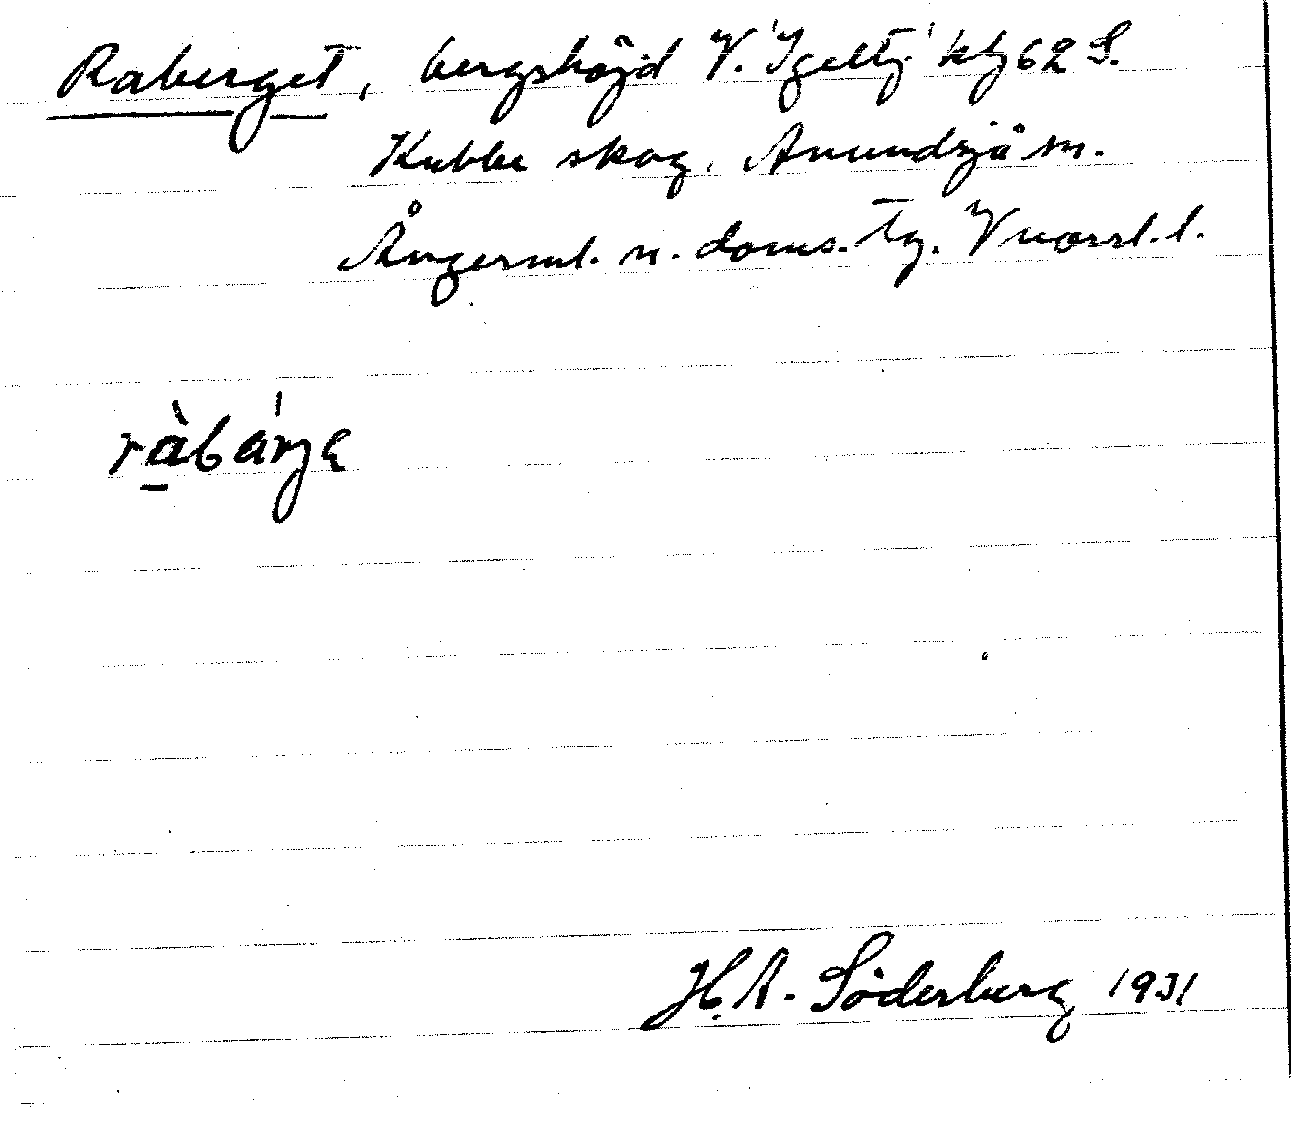 Raberget, bergshöjd V. 'Igeltj.' kbj 62 S.
Kubbe skog, Anundsjö sn.
Ångerml. n. doms. tg. Vnorrl. l.
ràbárjɛ
H.A. Söderberg 1931